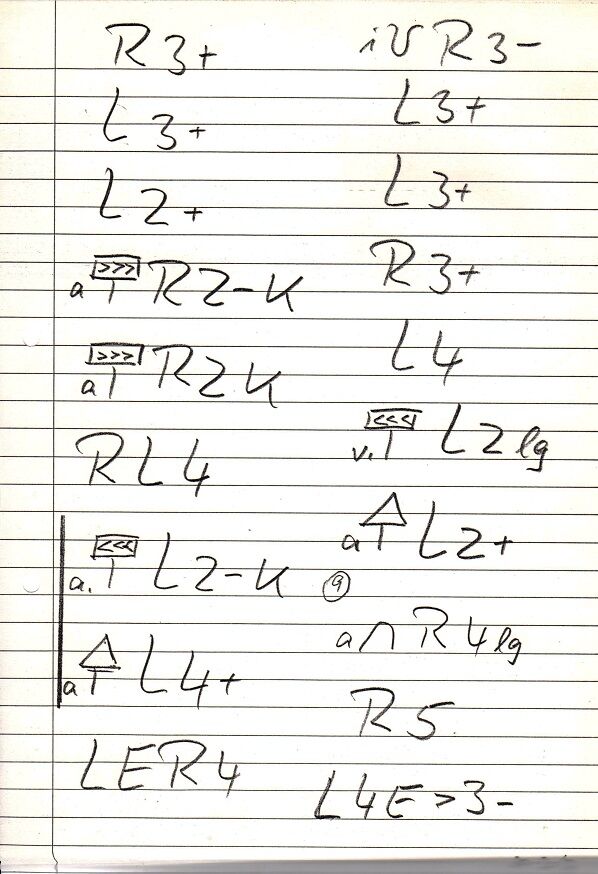 R 3+
L 3+
L 2+
a >>> R 2-K
a >>> R 2 K
R L 4
a. <<< L 2-K
a L 4+
L E R 4
iU R 3-
L 3+
L 3+
R 3+
L 4
v. <<< L 2 lg
a L 2+
9
a ∩ R 4 lg
R 5
L 4 E > 3-